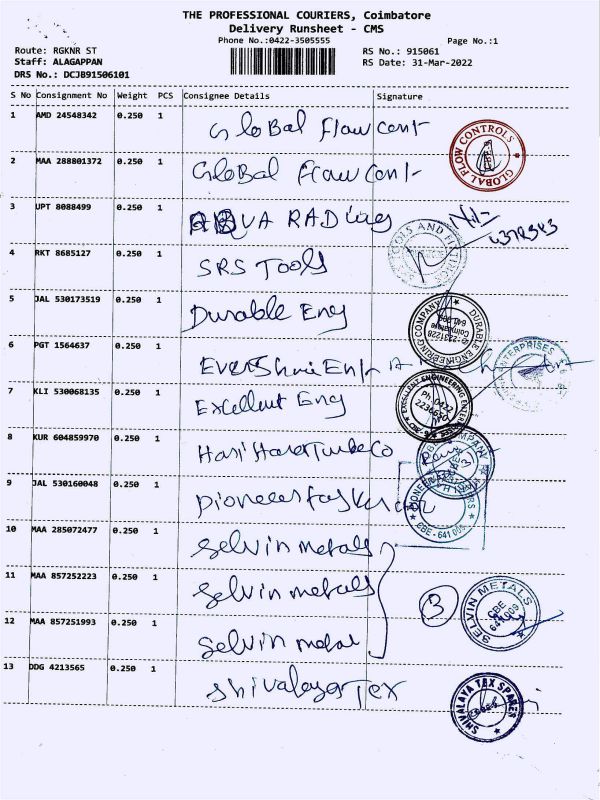 THE PROFESSIONAL COURIERS, Coimbatore
Delivery Runsheet - CMS
Phone No.:0422-3505555 Page No.:1
Route: RGKNR ST RS No.: 915061
Staff: ALAGAPPAN RS Date: 31-Mar-2022
DRS No.: DCJB91506101
S No Consignment No Weight PCS Consignee Details Signature
1 AMD 24548342 0.250 1 Global Flow cont
GLOBAL FLOW CONTROLS
2 MAA 288801372 0.250 1 Global Flow Cont
3 UPT 8088499 0.250 1 AQUA RADing
4 RKT 8685127 0.250 1 SRS Tools
TOOLS AND
5 JAL 530173519 0.250 1 Durable Eng
DURABLE ENGINEERING COMPANY
6 PGT 1564637 0.250 1
ENTERPRISES
7 KLI 530068135 0.250 1 Excellent Eng
EXCELLENT ENGINEERING
Ph: 0422
2236640
8 KUR 604859970 0.250 1
COMPANY
9 JAL 530160048 0.250 1
CBE - 641 009
10 MAA 285072477 0.250 1 Selvin metals
11 MAA 857252223 0.250 1 Selvin metals
3
SELVIN METALS
CBE
641 009
12 MAA 857251993 0.250 1 Selvin metal
13 DDG 4213565 0.250 1 Shivalaya Tex
SHIVALAYA TEX SPARES